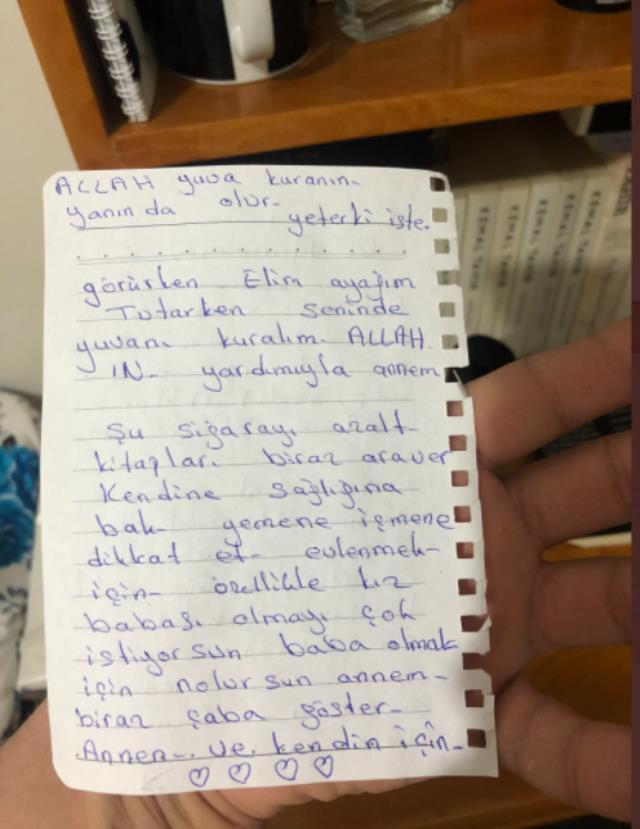 ALLAH yuva kuranın-
yanında olur- yeterki iste.
görürken Elim ayağım
Tutarken seninde
yuvanı kuralım. ALLAH.
IN- yardımıyla annem
Şu sigarayı azalt-
kitapları biraz araver
Kendine sağlığına
bak- yemene içmene
dikkat et- evlenmek-
için- özellikle kız
babası olmayı çok
istiyorsun baba olmak
için nolursun annem-
biraz çaba göster-
Annen-. ve. kendin için-
KEMAL TAHİR
KEMAL TAHİR
KEMAL TAHİR